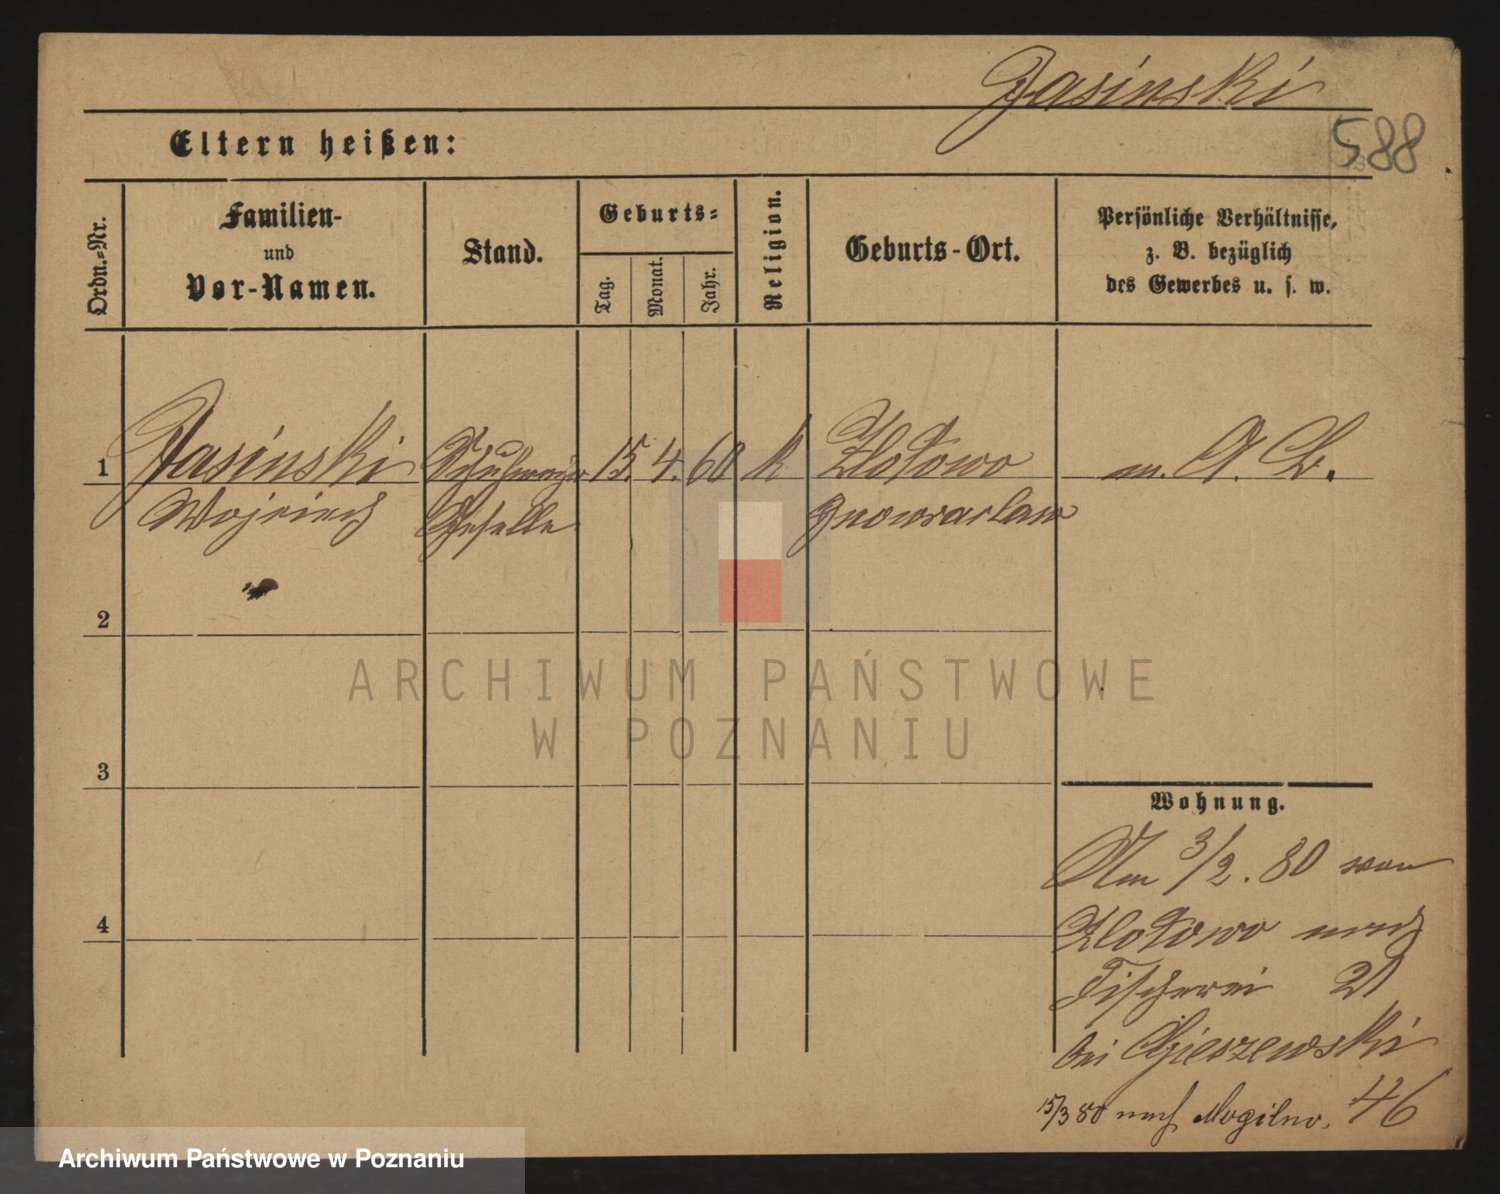 Jasinski
588.
Eltern heißen:
Ordn.-Nr.
Familien-
und
Vor-Namen.
Stand.
Geburts-
Tag.
Monat.
Jahr.
Religion.
Geburts-Ort.
Persönliche Verhältnisse,
z. B. bezüglich
des Gewerbes u. s. w.
1 Jasinski Schuhmacher 15. 4. 60 k Zlotowo m. A. B.
Wojciech Geselle Inowraclaw
2
3
4
Wohnung.
Am 3/2. 80 von
Zlotowo nach
Fischerei 21
bei Gieszewski
15/3 80 nach Mogilno. 46
ARCHIWUM PAŃSTWOWE
W POZNANIU
Archiwum Państwowe w Poznaniu